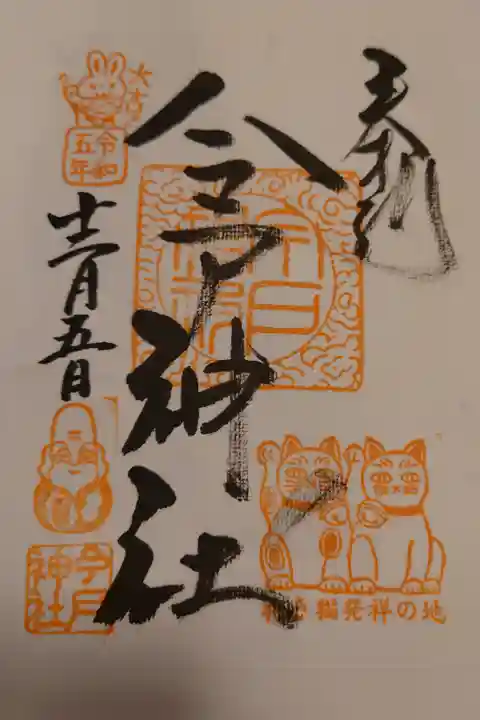 奉拝
今戸神社
大吉
令和
五年
十二月五日
今戸
神社
今戸
神社
招き猫発祥の地